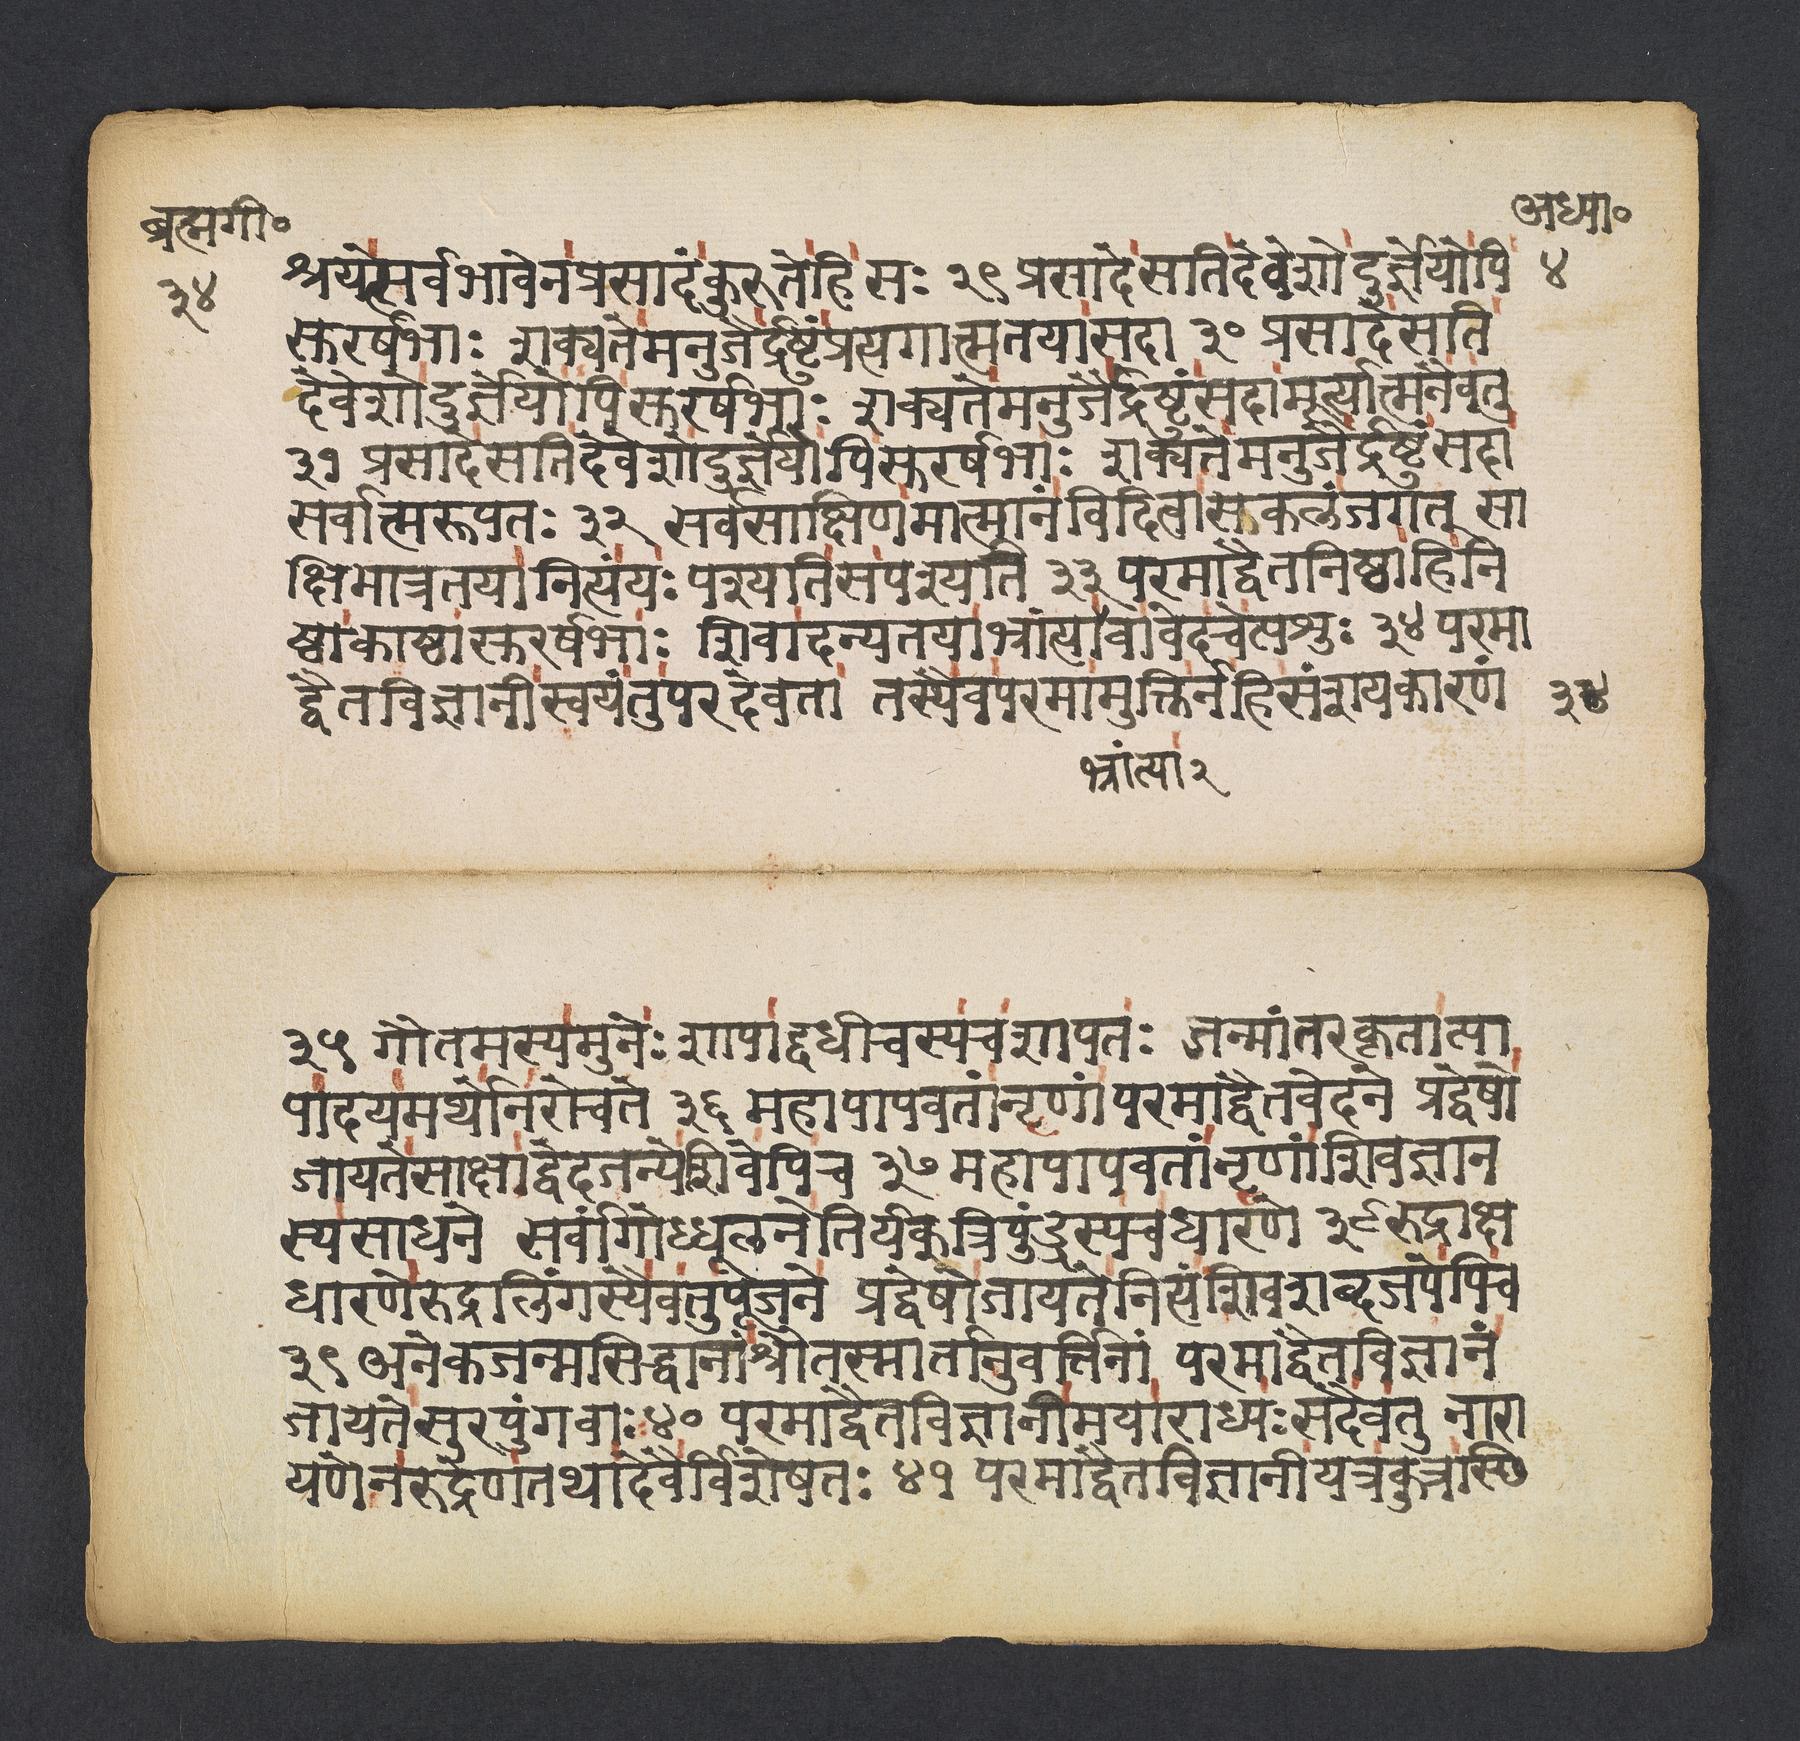 ब्रह्मगी०
३४
अध्या०
४
श्रयेत्सर्वभावेनप्रसादंकुरुतेहिसः २९ प्रसादेसतिदेवेशोदुर्ज्ञेयोपि
सुरर्षभाः शक्यतेमनुजैर्द्रष्टुंप्रत्यगात्मतयासदा ३० प्रसादेसति
देवेशोदुर्ज्ञेयोपिसुरर्षभाः शक्यतेमनुजैर्द्रष्टुंसदामूर्त्यात्मनैवतु
३१ प्रसादेसतिदेवेशोदुर्ज्ञेयोपिसुरर्षभाः शक्यतेमनुजैर्द्रष्टुंसदा
सर्वात्मरूपतः ३२ सर्वसाक्षिणमात्मानंविदित्वासकलंजगत् सा
क्षिमात्रतयानित्यंयः पश्यतिसपश्यति ३३ परमाद्वैतनिष्ठाहिनि
ष्ठाकाष्ठासुरर्षभाः शिवादन्यतयाभ्रांत्यावावेदचेत्पशुः ३४ परमा
द्वैतविज्ञानीस्वयंतुपरदेवता तस्यैवपरमामुक्तिर्नहिसंशयकारणं
३४
भ्रांत्या २
३५ गौतमस्यमुनेः शापाद्दधीचस्यचशापतः जन्मांतरकृतात्पा
पादयमर्थोनरोचते ३६ महापापवतांनृणांपरमाद्वैतवेदने प्रद्वेषो
जायतेसाक्षाद्वेदजन्येशिवेपिच ३७ महापापवतांनृणांशिवज्ञान
स्यसाधने सर्वांगोध्धूलनेतिर्यक्त्रिपुंड्रस्यचधारणे ३८ रुद्राक्ष
धारणेरुद्रलिंगस्यैवतुपूजने प्रद्वेषोजायतेनित्यंशिवशब्दजपेपिच
३९ अनेकजन्मसिद्धानांश्रौतस्मार्तानुवर्त्तिनां परमाद्वैतविज्ञानं
जायतेसुरपुंगवाः ४० परमाद्वैतविज्ञानीमयाराध्यः सदैवतु नारा
यणेनरुद्रेणतथादेवैर्विशेषतः ४१ परमाद्वैतविज्ञानीयत्रकुत्रस्थि